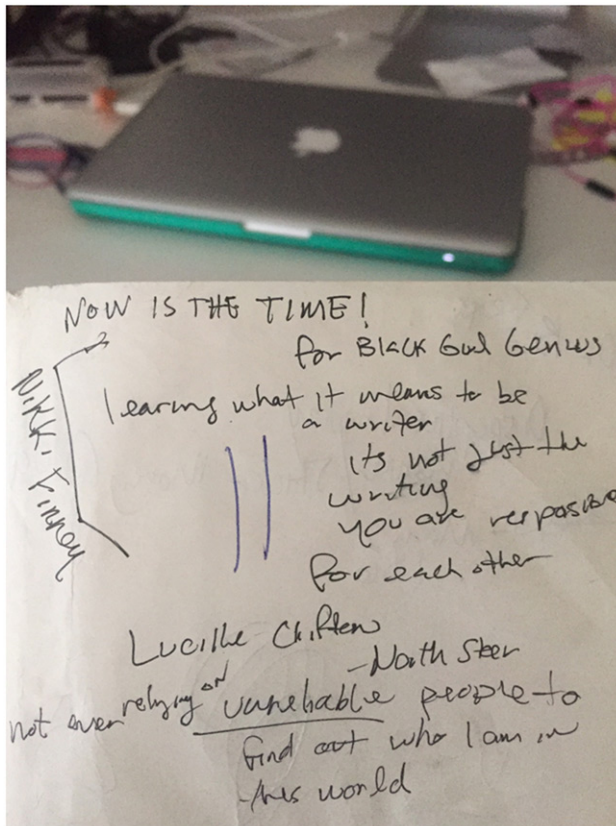 NOW IS THE TIME!
for BLACK Girl Genius
Nikki Finney
learning what it means to be
a writer
its not just the
writing
you are
for each other
Lucille Clifton
- North Star
not over relying on unreliable people to
find out who I am in
this world